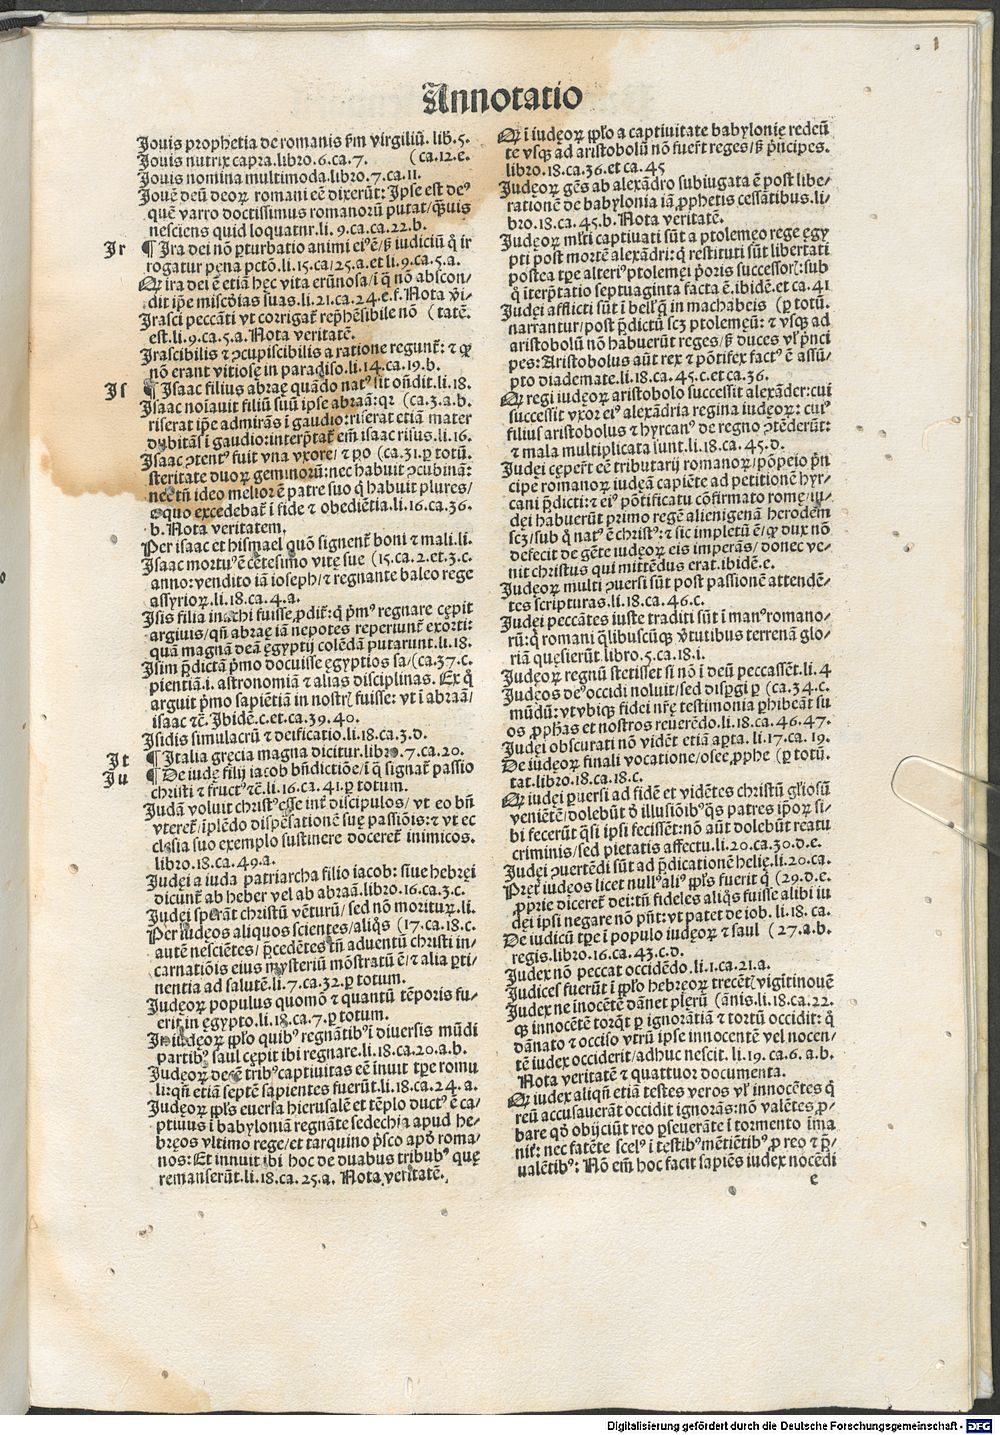 1
Annotatio
Jouis prophetia de romanis ẜm virgiliū. lib.5.
Jouis nutrix capra.libro.6.ca.7. (ca.12.e.
Jouis nomina multimoda.libro.7.ca.11.
Jouē deū deoꝝ romani eē dixerūt: Ipse est deꝰ
quē varro doctissimus romanorū putat/q̄uis
nesciens quid loquatur.li. 9.ca.ca.22.b.
Ir ¶ Ira dei nō ꝑturbatio animi eiꝰ ē/ß iudiciū q̊ ir
rogatur pęna pctō.li.15.ca/25.a.et li.9.ca.5.a.
Qꝫ ira dei ē etiā hęc vita erūnosa/ī q̄ nō abscon/
dit ip̄e mīas suas.li.21.ca.24.e.f. Nota v̄i/
Irasci peccāti vt corrigat᷑ rep̄hēsibile nō (tatē.
est.li.9.ca.5.a. Nota veritatē.
Irascibilis ⁊ ꝯcupiscibilis a ratione regunt᷑: ⁊ ꝙ
nō erant vitiosę in paradiso.li.14.ca.19.b.
Is ¶ Isaac filius abraę quādo natꝰ sit oñdit.li.18.
Isaac noīauit filiū suū ipse abraā:qꝛ (ca.3.a.b.
riserat ip̄e admirās ī gaudio:riserat etiā mater
dubitās ī gaudio:interp̄tat᷑ em̄ isaac risus.li.16.
Isaac ꝯtentꝰ fuit vna vxore/ ⁊ ꝓ (ca.31.ꝑ totū.
steritate duoꝝ geminorū:nec habuit ꝯcubinā:
nec tn̄ ideo melior ē patre suo q̄ habuit plures/
quo excedebat᷑ ī fide ⁊ obediētia.li.16.ca.36.
b. Nota veritatem.
Per isaac et hismael quō signent᷑ boni ⁊ mali.li.
Isaac mortuꝰ ē cētesimo vitę sue (15.ca.2.et.3.c.
anno:vendito iā ioseph/⁊ regnante baleo rege
assyrioꝝ.li.18.ca.4.a.
Isis filia inachi fuisse ꝓdit᷑:q̄ p̄mꝰ regnare cępit
argiuis/qn̄ abraę iā nepotes reperiunt᷑ exorti:
quā magnā deā ęgyptij colēdā putarunt.li.18.
Isim p̄dictā p̄mo docuisse ęgyptios sa/(ca.37.c.
pientiā.i. astronomiā ⁊ alias disciplinas. Ex q̊
arguit p̄mo sapiētiā in nostrꝭ fuisse: vt ī abraā/
isaac ⁊c̄. Ibidē.c.et.ca.39.40.
Isidis simulacrū ⁊ deificatio.li.18.ca.3.d.
It ¶ Italia gręcia magna dicitur.libro.7.ca.20.
Iu ¶ De iudę filij iacob bn̄dictiōe/ī q̄ signat᷑ passio
christi ⁊ fructꝰ ⁊c̄.li.16.ca.41.ꝑ totum.
Judā voluit christꝰ esse int᷑ discipulos/ vt eo bn̄
vteret᷑/īplēdo dispēsationē suę passiōis:⁊ vt ec
clesia suo exemplo sustinere doceret᷑ inimicos.
libro.18.ca.49.a.
Judęi a iuda patriarcha filio iacob: siue hebręi
dicunt᷑ ab heber vel ab abraā.libro.16.ca.3.c.
Judęi sperāt christū vēturū/ sed nō morituꝝ.li.
Per iudęos aliquos scientes/aliq̊s (17.ca.18.c.
autē nesciētes/ p̄cedētes tn̄ aduentū christi in/
carnatiōis eius mysteriū mōstratū ē/⁊ alia ꝑti/
nentia ad salutē.li.7.ca.32.ꝑ totum.
Judęoꝝ populus quomō ⁊ quantū tēporis fu/
erit in ęgypto.li.18.ca.7.ꝑ totum.
In iudęoꝝ ꝓplo quibꝰ regnātibꝰ ī diuersis mūdi
partibꝰ saul cępit ibi regnare.li.18.ca.20.a.b.
Judęoꝝ decē tribꝰ captiuitas eē inuit tꝑe romu
li:qn̄ etiā septē sapientes fuerūt.li.18.ca.24.a.
Judęoꝝ ꝓpl̄s euersa hierusalē et tēplo ductꝰ ē ca/
ptiuus ī babyloniā regnāte sedechia apud he/
bręos vltimo rege/et tarquino p̄sco apd̓ roma/
nos:Et innuit ibi hoc de duabus tribubꝰ quę
remanserūt.li.18.ca.25.a. Nota veritatē.
Qꝫ ī iudęoꝝ ꝓplo a captiuitate babylonię redeū
te vsqꝫ ad aristobolū nō fuer̄t reges/ß p̄ncipes.
libro.18.ca.36.et ca.45
Judęoꝝ gēs ab alexādro subiugata ē post libe/
rationē de babylonia iā ꝓphetis cessātibus.li/
bro.18.ca.45.b. Nota veritatē.
Judęoꝝ ml̓ti captiuati sūt a ptolemeo rege ęgy
pti post mortē alexādri:q̄ restituti sūt libertati
postea tꝑe alteriꝰ ptolemei p̄oris successorꝭ:sub
q̊ iterp̄tatio septuaginta facta ē.ibidē.et ca.41
Judęi afflicti sūt ī bell̓ q̄ in machabeis (ꝑ totū.
narrantur/post p̄dictū scꝫ ptolemęū: ⁊ vsqꝫ ad
aristobolū nō habuerūt reges/ß duces vl̓ p̄nci
pes: Aristobolus aūt rex ⁊ pōtifex factꝰ ē assū/
pto diademate.li.18.ca.45.c.et ca.36.
Qꝫ regi iudęoꝝ aristobolo successit alexāder:cui
successit vxor eiꝰ alexādria regina iudęoꝝ: cuiꝰ
filius aristobolus ⁊ hyrcanꝰ de regno ꝯtēderūt:
⁊ mala multiplicata sunt.li.18.ca.45.d.
Judęi cęper̄t eē tributarij romanoꝝ/pōpeio p̄n
cipe romanoꝝ iudęā capiēte ad petitionē hyr/
cani p̄dicti:⁊ eiꝰ pōtificatu cōfirmato romę/iu/
dęi habuerūt primo regē alienigenā herodem
scꝫ/sub q̊ natꝰ ē christꝰ:⁊ sic impletū ē/ꝙ dux nō
defecit de gēte iudęoꝝ eis imperās/ donec ve/
nit christus qui mittēdus erat.ibidē.e.
Judęoꝝ multi ꝯuersi sūt post passionē attendē/
tes scripturas.li.18.ca.46.c.
Judęi peccātes iuste traditi sūt ī manꝰ romano/
rū:q̄ romani q̄libuscūqꝫ v̓tutibus terrenā glo/
riā quęsierūt.libro.5.ca.18.i.
Judęoꝝ regnū stetisset si nō ī deū peccassēt.li.4
Judęos deꝰ occidi noluit/sed disp̄gi ꝑ (ca.34.c.
mūdū:vt vbiqꝫ fidei nr̄ę testimonia ꝑhibeāt su
os ꝓph̄as et nostros reuerēdo.li.18.ca.46.47.
Judęi obscurati nō vidēt etiā aꝑta.li.17.ca.19.
De iudęoꝝ finali vocatione/osee ꝓphe (ꝑ totū.
tat.libro.18.ca.18.c.
Qꝫ iudęi ꝑuersi ad fidē et vidētes christū gl̓iosū
veniētē/dolebūt d̓ illusiōibꝰ q̊s patres ip̄oꝝ si/
bi fecerūt q̄si ipsi fecissēt:nō aūt dolebūt reatu
criminis/sed pietatis affectu.li.20.ca.30.d.e.
Judęi ꝯuertēdi sūt ad p̄dicationē helię.li.20.ca.
Pręt᷑ iudęos licet nullꝰ aliꝰ ꝓpl̓s fuerit q̊ (29.d.e.
ꝓprie diceret᷑ dei:tn̄ fideles aliq̊s fuisse alibi iu
dęi ipsi negare nō pn̄t:vt patet de iob. li.18. ca.
De iudicū tꝑe ī populo iudęoꝝ ⁊ saul (27.a.b.
regis.libro.16.ca.43.c.d.
Judex nō peccat occidēdo.li.1.ca.21.a.
Judices fuerūt ī ꝓplo hebręoꝝ trecētꝭ vigītinouē
Judex ne īnocētē dānet plerū (ānis.li.18.ca.22.
qꝫ innocētē torq̄t ꝑ ignorātiā ⁊ tortū occidit: q̊
dānato ⁊ occiso vtrū ipse innocentē vel nocen/
tē iudex occiderit/adhuc nescit. li.19. ca.6. a.b.
Nota veritatē ⁊ quattuor documenta.
Qꝫ iudex aliqn̄ etiā testes veros vl̓ innocētes q̄
reū accusauerāt occidit ignorās:nō valētes ꝓ/
bare qd̓ obijciūt reo ꝑseuerāte ī tormento īma
nit᷑: nec fatēte scelꝰ ī testibꝰ mētiētibꝰ ꝓ reo ⁊ p̄/
ualētibꝰ: Nō em̄ hoc facit sapiēs iudex nocēdi
e
Digitalisierung gefördert durch die Deutsche Forschungsgemeinschaft - DFG